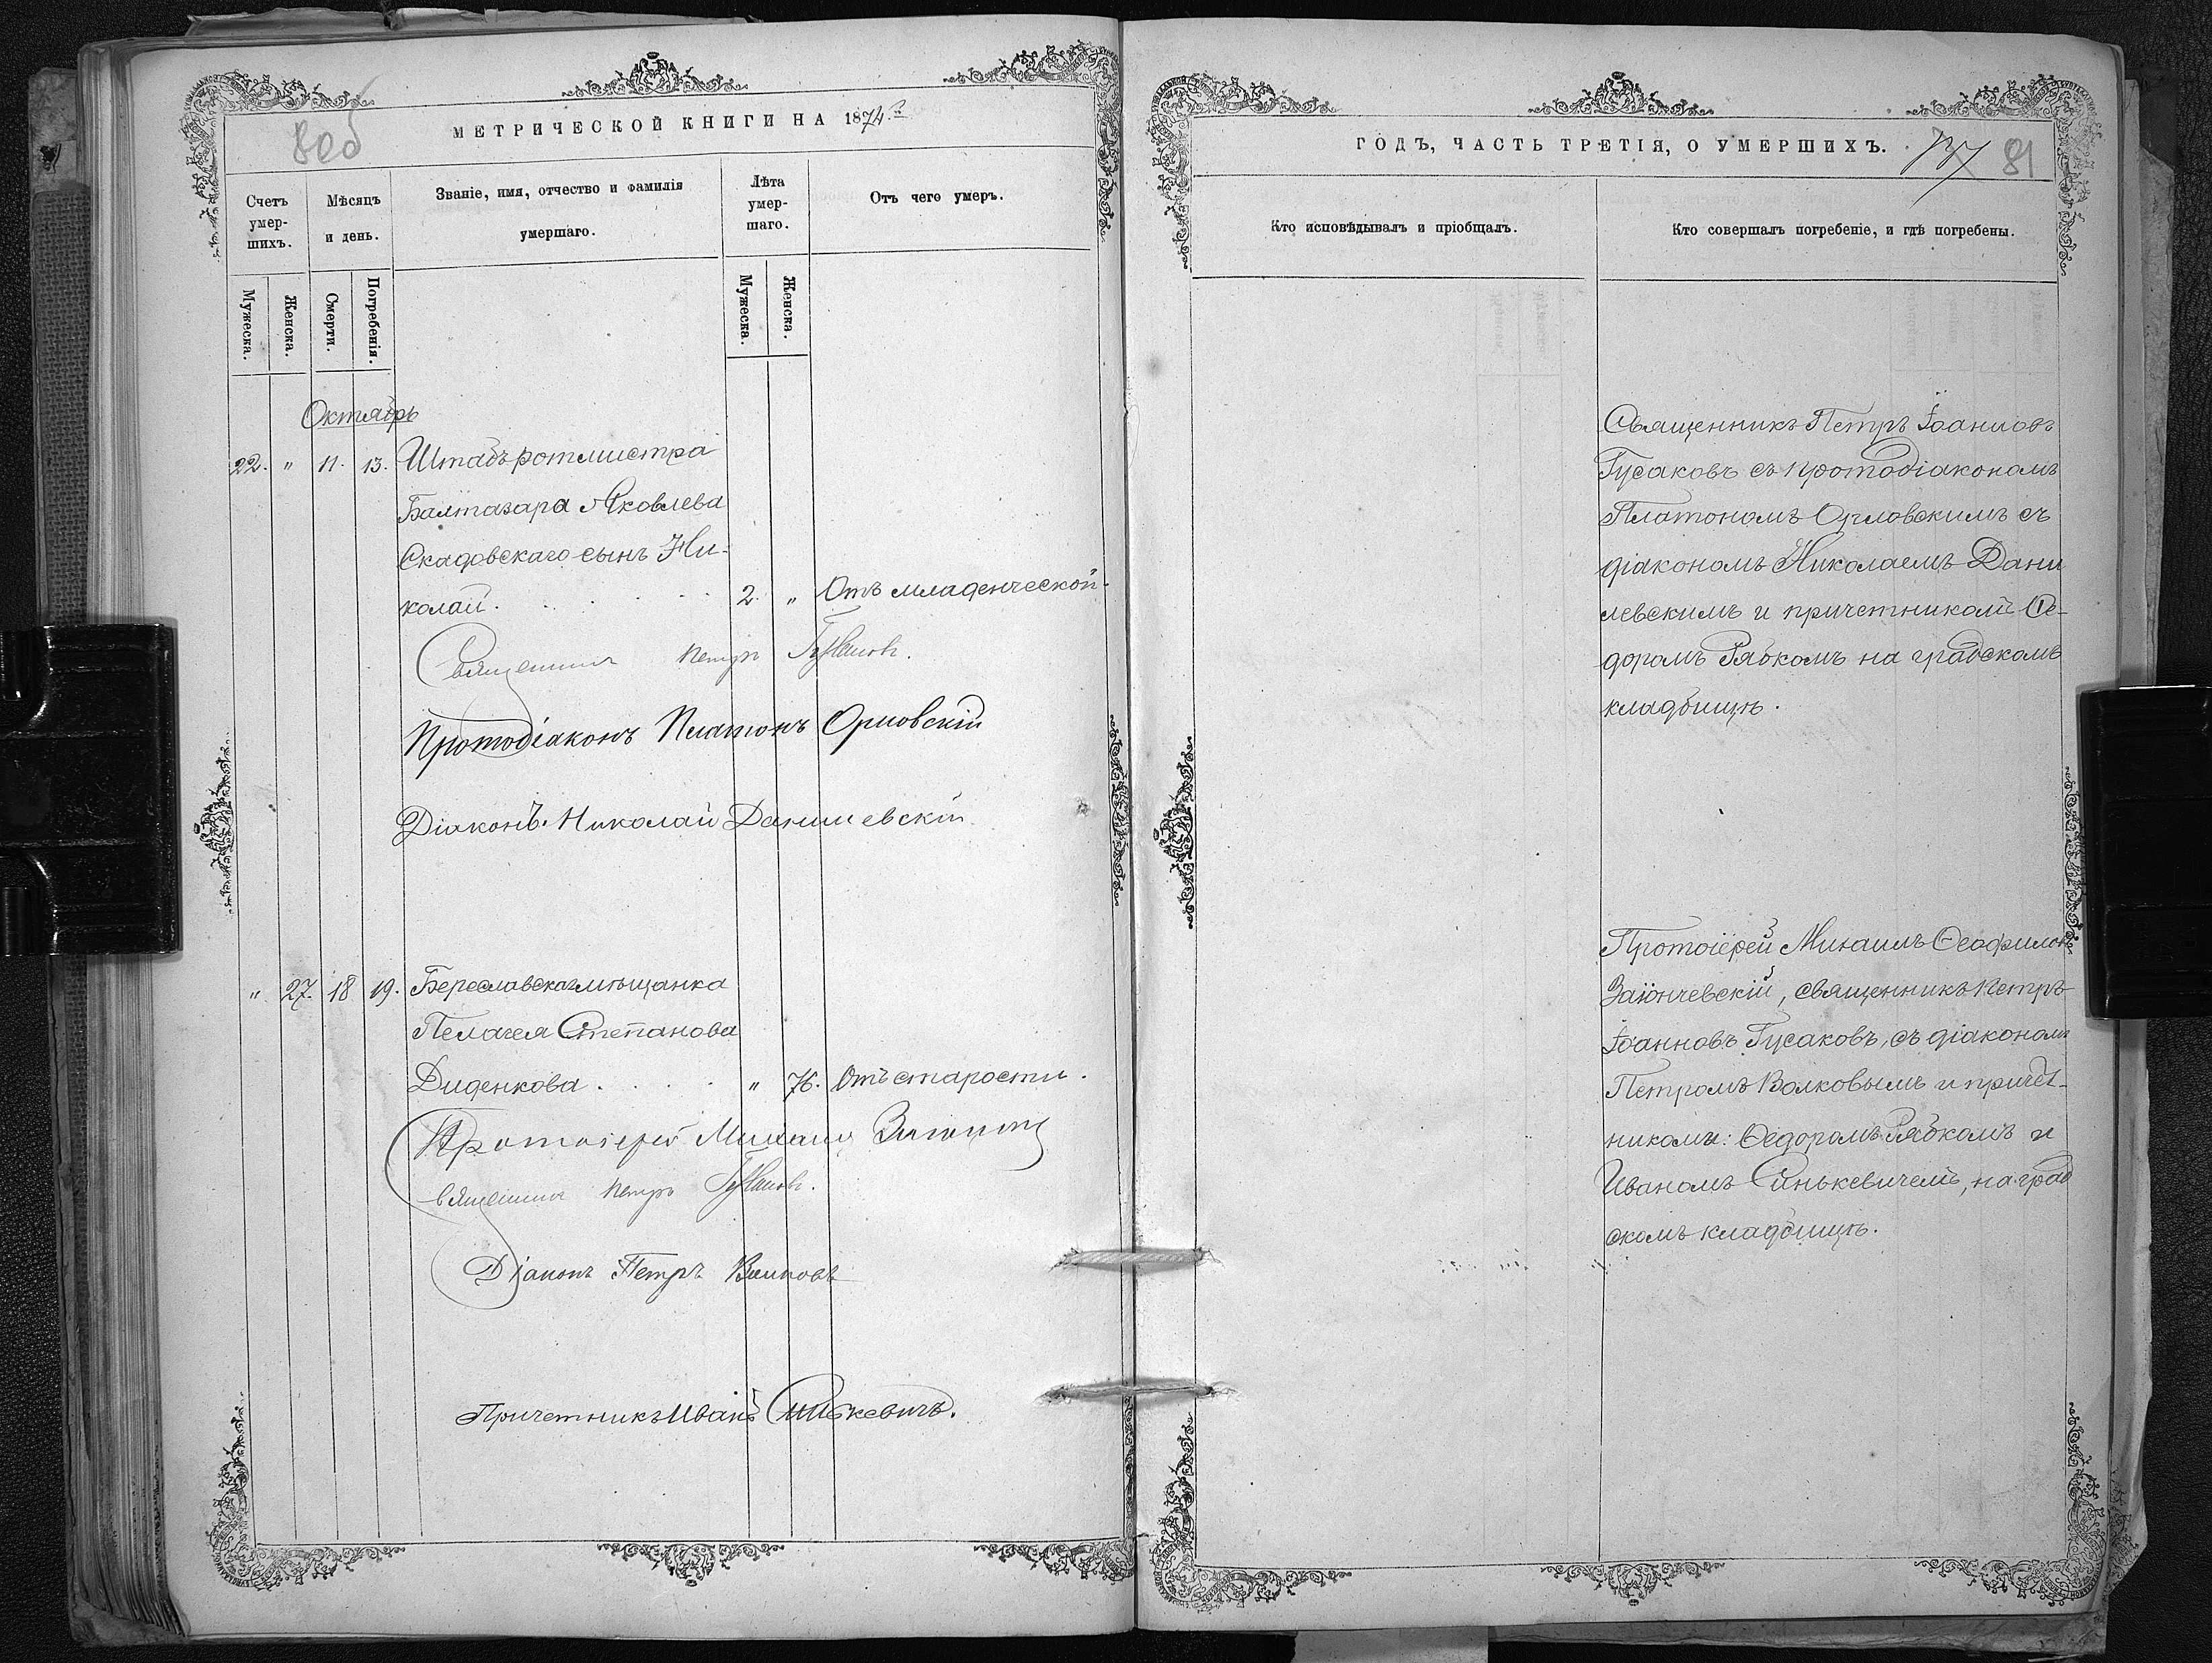 80об
МЕТРИЧЕСКОЙ КНИГИ НА 1874й
Счетъ умер-шихъ.
Мѣсяцъ и день.
Званіе, имя, отчество и фамилія умершаго.
Лѣта умер-шаго.
Отъ чего умеръ.
Мужеска.
Женска.
Смерти.
Погребенія.
Мужеска.
Женска.
Октябрь
22. " 11. 13. Штабъ ротмистра
Балтазара Яковлева
Скадовскаго сынъ Ни-
колай. . . . . . 2. " Отъ младенческой.
Священникъ Петръ Гусаковъ.
Протодіаконъ Платонъ Орловскій
Діаконъ Николай Данилевскій
" 27. 18 19. Береславская мѣщанка
Пелагея Степанова
Диденкова . . . . " 76. Отъ старости.
Протоіерей Михаилъ
Священникъ Петръ Гусаковъ.
Діаконъ Петръ Волковъ
Причетникъ Иванъ Синькевичъ.
ГОДЪ, ЧАСТЬ ТРЕТІЯ, О УМЕРШИХЪ.
81
Кто исповѣдывалъ и пріобщалъ.
Кто совершалъ погребеніе, и гдѣ погребены.
Священникъ Петръ Іоанновъ
Гусаковъ съ протодіакономъ
Платономъ Орловскимъ съ
діакономъ Николаемъ Дани
левскимъ и причетникомъ Ѳе-
доромъ Рябкомъ на градскомъ
кладбищѣ.
Протоіерей Михаилъ Ѳеофилов
Заіончевскій, священникъ Петръ
Іоанновъ Гусаковъ, съ діакономъ
Петромъ Волковымъ и причет-
никами: Ѳедоромъ Рябкомъ и
Иваномъ Синькевичемъ, на град
скомъ кладбищѣ.